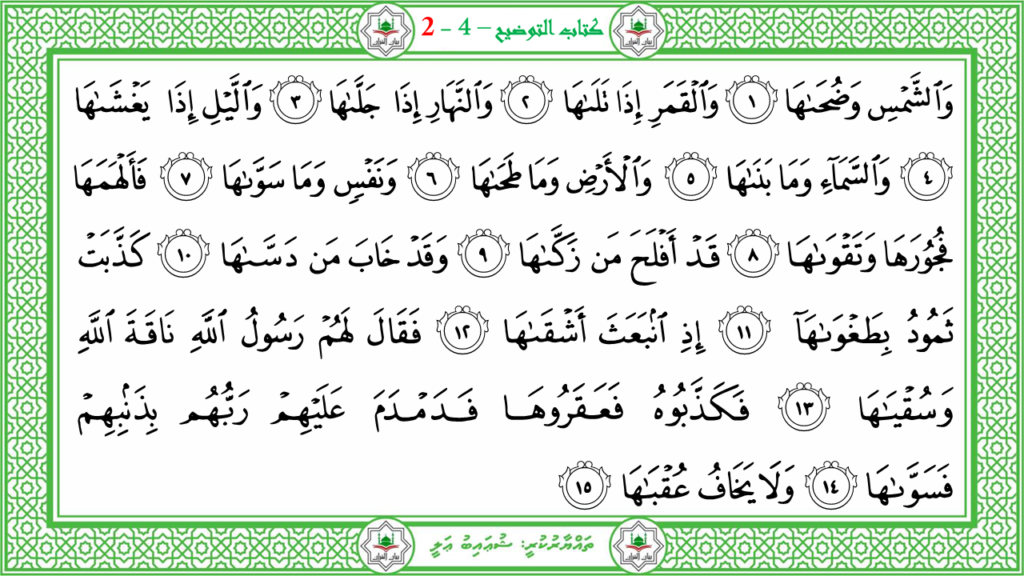 كتاب التوضيح – 4 - 2
وَٱلشَّمۡسِ وَضُحَىٰهَا ١ وَٱلۡقَمَرِ إِذَا تَلَىٰهَا ٢ وَٱلنَّهَارِ إِذَا جَلَّىٰهَا ٣ وَٱلَّيۡلِ إِذَا يَغۡشَىٰهَا
٤ وَٱلسَّمَآءِ وَمَا بَنَىٰهَا ٥ وَٱلۡأَرۡضِ وَمَا طَحَىٰهَا ٦ وَنَفۡسٖ وَمَا سَوَّىٰهَا ٧ فَأَلۡهَمَهَا
فُجُورَهَا وَتَقۡوَىٰهَا ٨ قَدۡ أَفۡلَحَ مَن زَكَّىٰهَا ٩ وَقَدۡ خَابَ مَن دَسَّىٰهَا ١٠ كَذَّبَتۡ
ثَمُودُ بِطَغۡوَىٰهَآ ١١ إِذِ ٱنۢبَعَثَ أَشۡقَىٰهَا ١٢ فَقَالَ لَهُمۡ رَسُولُ ٱللَّهِ نَاقَةَ ٱللَّهِ
وَسُقۡيَٰهَا ١٣ فَكَذَّبُوهُ فَعَقَرُوهَا فَدَمۡدَمَ عَلَيۡهِمۡ رَبُّهُم بِذَنۢبِهِمۡ
فَسَوَّىٰهَا ١٤ وَلَا يَخَافُ عُقۡبَٰهَا ١٥
ތައްޔާރުކުރީ: ޝުޢައިބު ޢަލީ